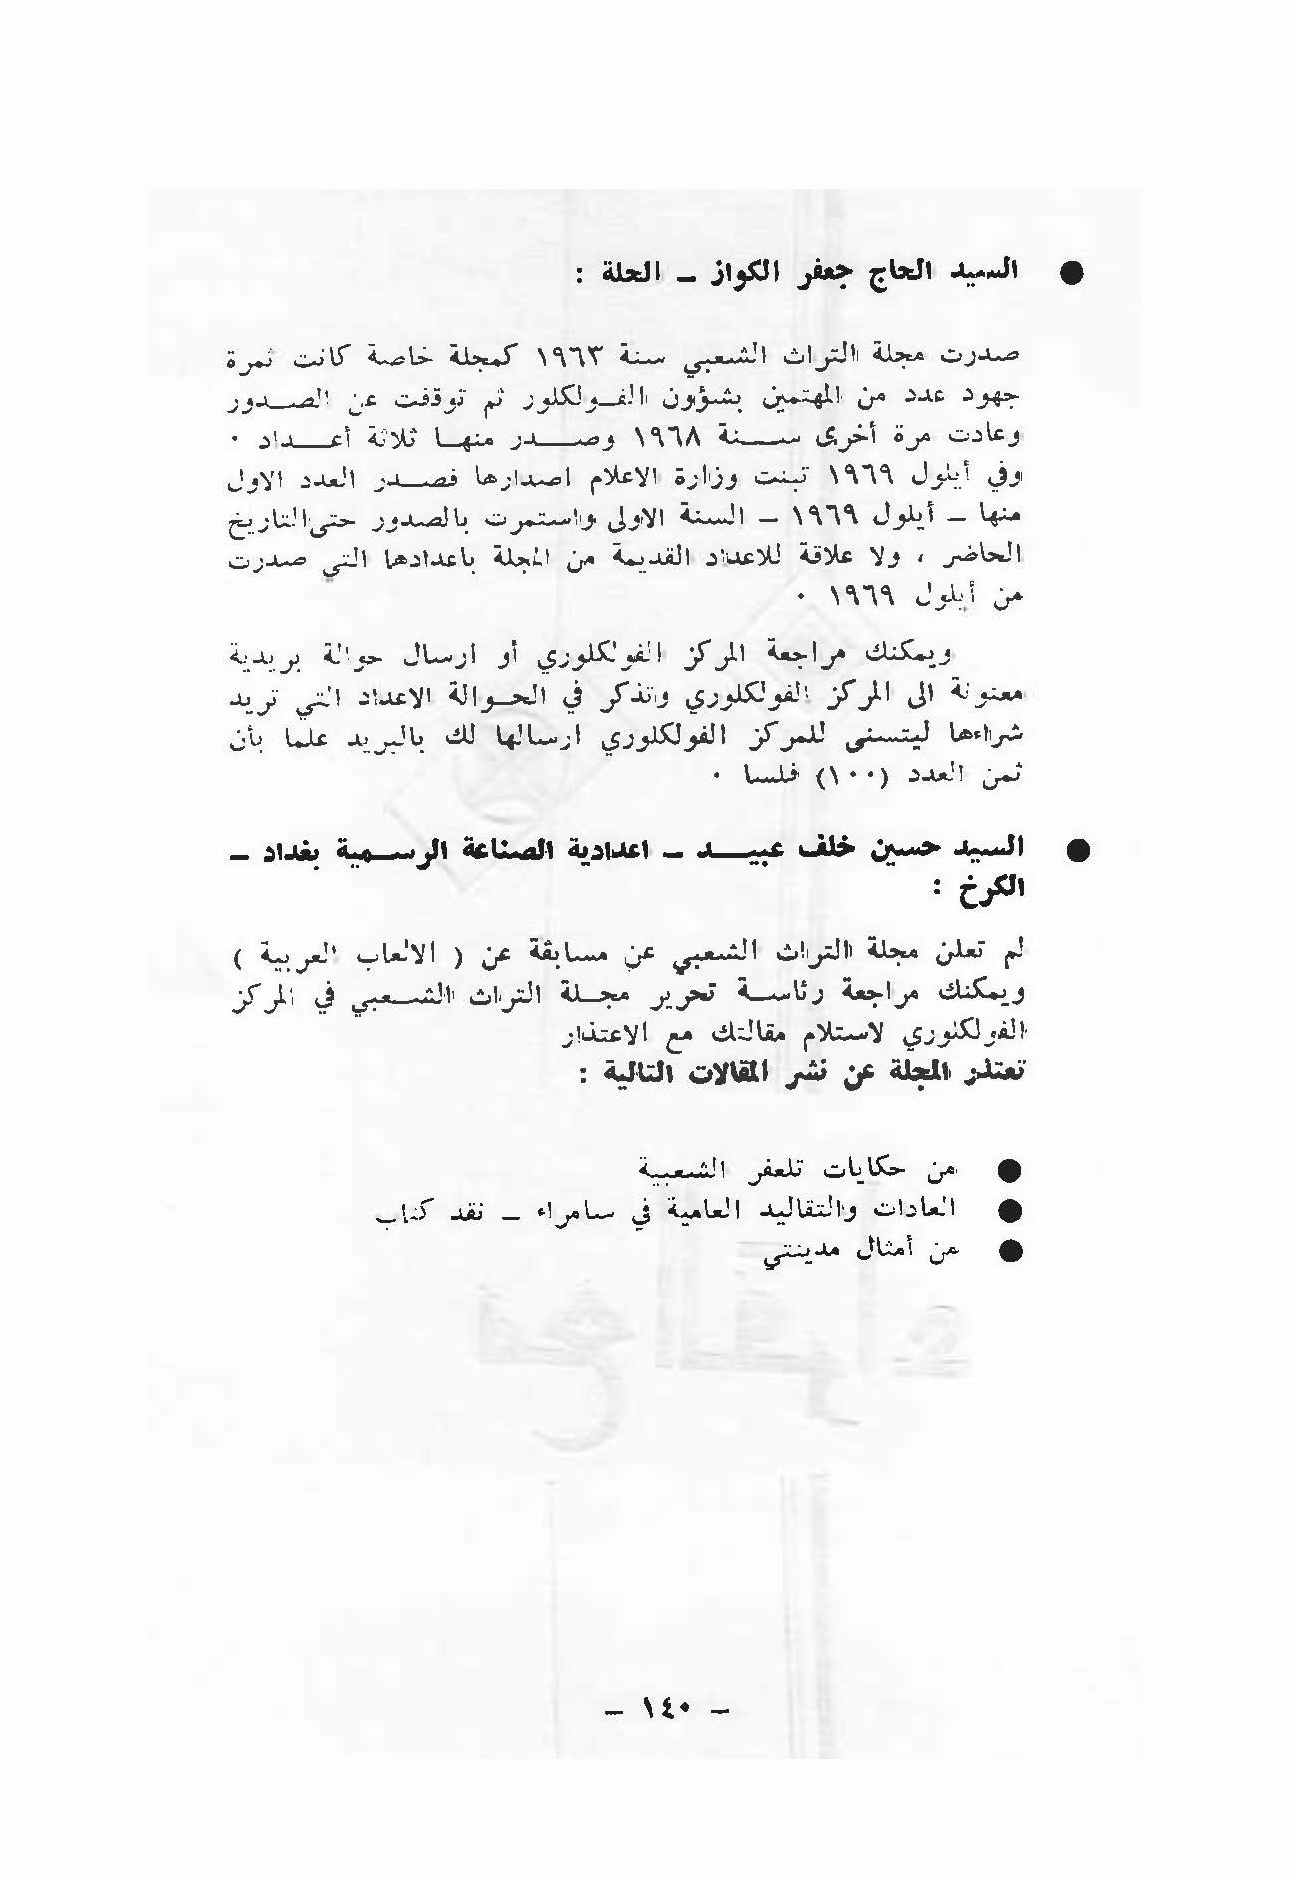 ● السيد الحاج جعفر الكواز ـ الحلة :
صدرت مجلة التراث الشعبي سنة ١٩٦٣ كمجلة خاصة كانت ثمرة
جهود عدد من المهتمين بشؤون الفولكلور ثم توقفت عن الصدور
وعادت مرة أخرى سنة ١٩٦٨ وصدر منها ثلاثة أعداد ٠
وفي أيلول ١٩٦٩ تبنت وزارة الاعلام اصدارها فصدر العدد الاول
منها ـ أيلول ١٩٦٩ ـ السنة الاولى واستمرت بالصدور حتى التاريخ
الحاضر ، ولا علاقة للاعداد القديمة من المجلة باعدادها التي صدرت
من أيلول ١٩٦٩ ٠
ويمكنك مراجعة المركز الفولكلوري أو ارسال حوالة بريدية
معنونة الى المركز الفولكلوري وتذكر في الحوالة الاعداد التي تريد
شراءها ليتسنى للمركز الفولكلوري ارسالها لك بالبريد علما بأن
ثمن العدد (١٠٠) فلسا ٠
● السيد حسين خلف عبيد ـ اعدادية الصناعة الرسمية بغداد ـ
الكرخ :
لم تعلن مجلة التراث الشعبي عن مسابقة عن ( الالعاب العربية )
ويمكنك مراجعة رئاسة تحرير مجلة التراث الشعبي في المركز
الفولكلوري لاستلام مقالتك مع الاعتذار
تعتذر المجلة عن نشر المقالات التالية :
● من حكايات تلعفر الشعبية
● العادات والتقاليد العامية في سامراء ـ نقد كتاب
● من أمثال مدينتي
ـ ١٤٠ ـ